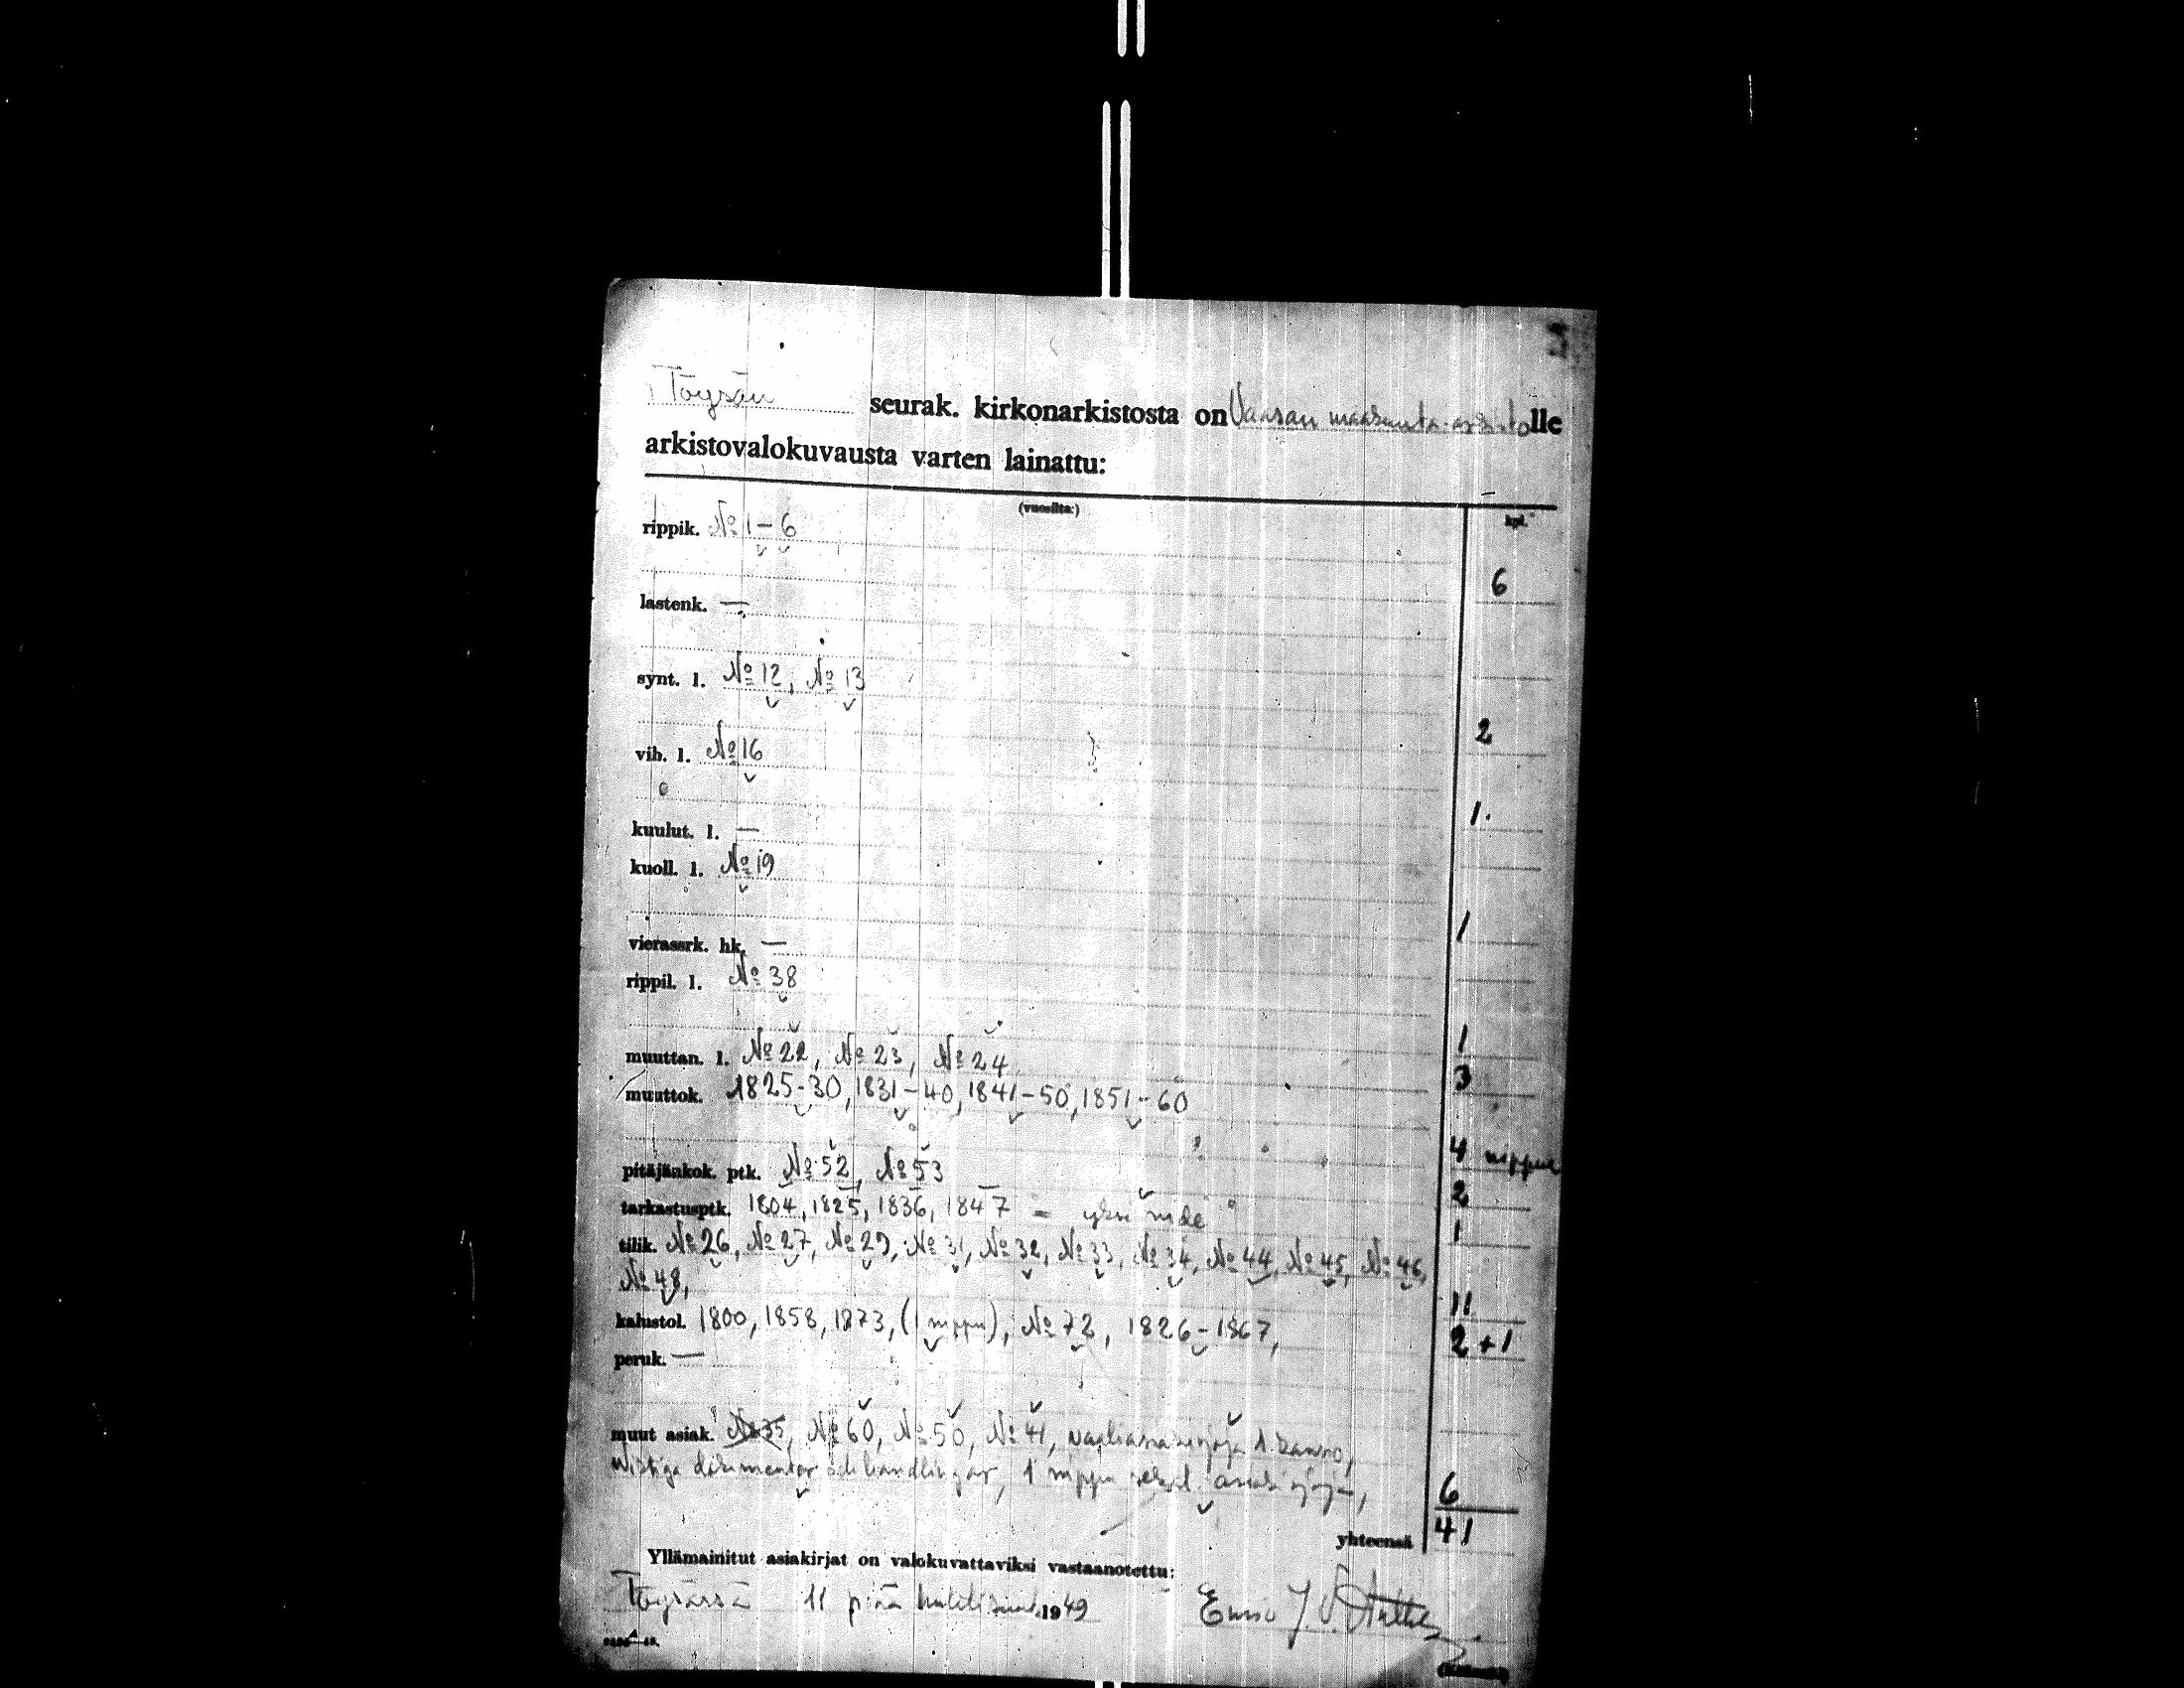 Töysän seurak. kirkonarkistosta on Vaasan maakunta-arkistolle
arkistovalokuvausta varten lainattu:
(vuosilta:) kpl.
rippik. № 1–6
6
lastenk. —
synt. l. № 12, № 13
2
vih. l. № 16
1.
kuulut. l. —
kuoll. l. № 19
1
vierassrk. hk. —
rippil. l. № 38
1
muuttan. l. № 22, № 23, № 24
3
muuttok. 1825-30, 1831-40, 1841-50, 1851-60
4 nippua
pitäjänkok. ptk. № 52, № 53
2
tarkastusptk. 1804, 1825, 1836, 1847 = yksi nide
1
tilik. № 26, № 27, № 29, № 31, № 32, № 33, № 34, № 44, № 45, № 46,
№ 48,
11
kalustol. 1800, 1858, 1873, (1 nippu), № 72, 1826-1867,
2 + 1
peruk. —
muut asiak. № 35, № 60, № 50, № 41, 1
dokumenter och handlingar, 1 nippu
6
yhteensä 41
Yllämainitut asiakirjat on valokuvattaviksi vastaanotettu:
Töysässä 11 p:nä huhtikuun 1949